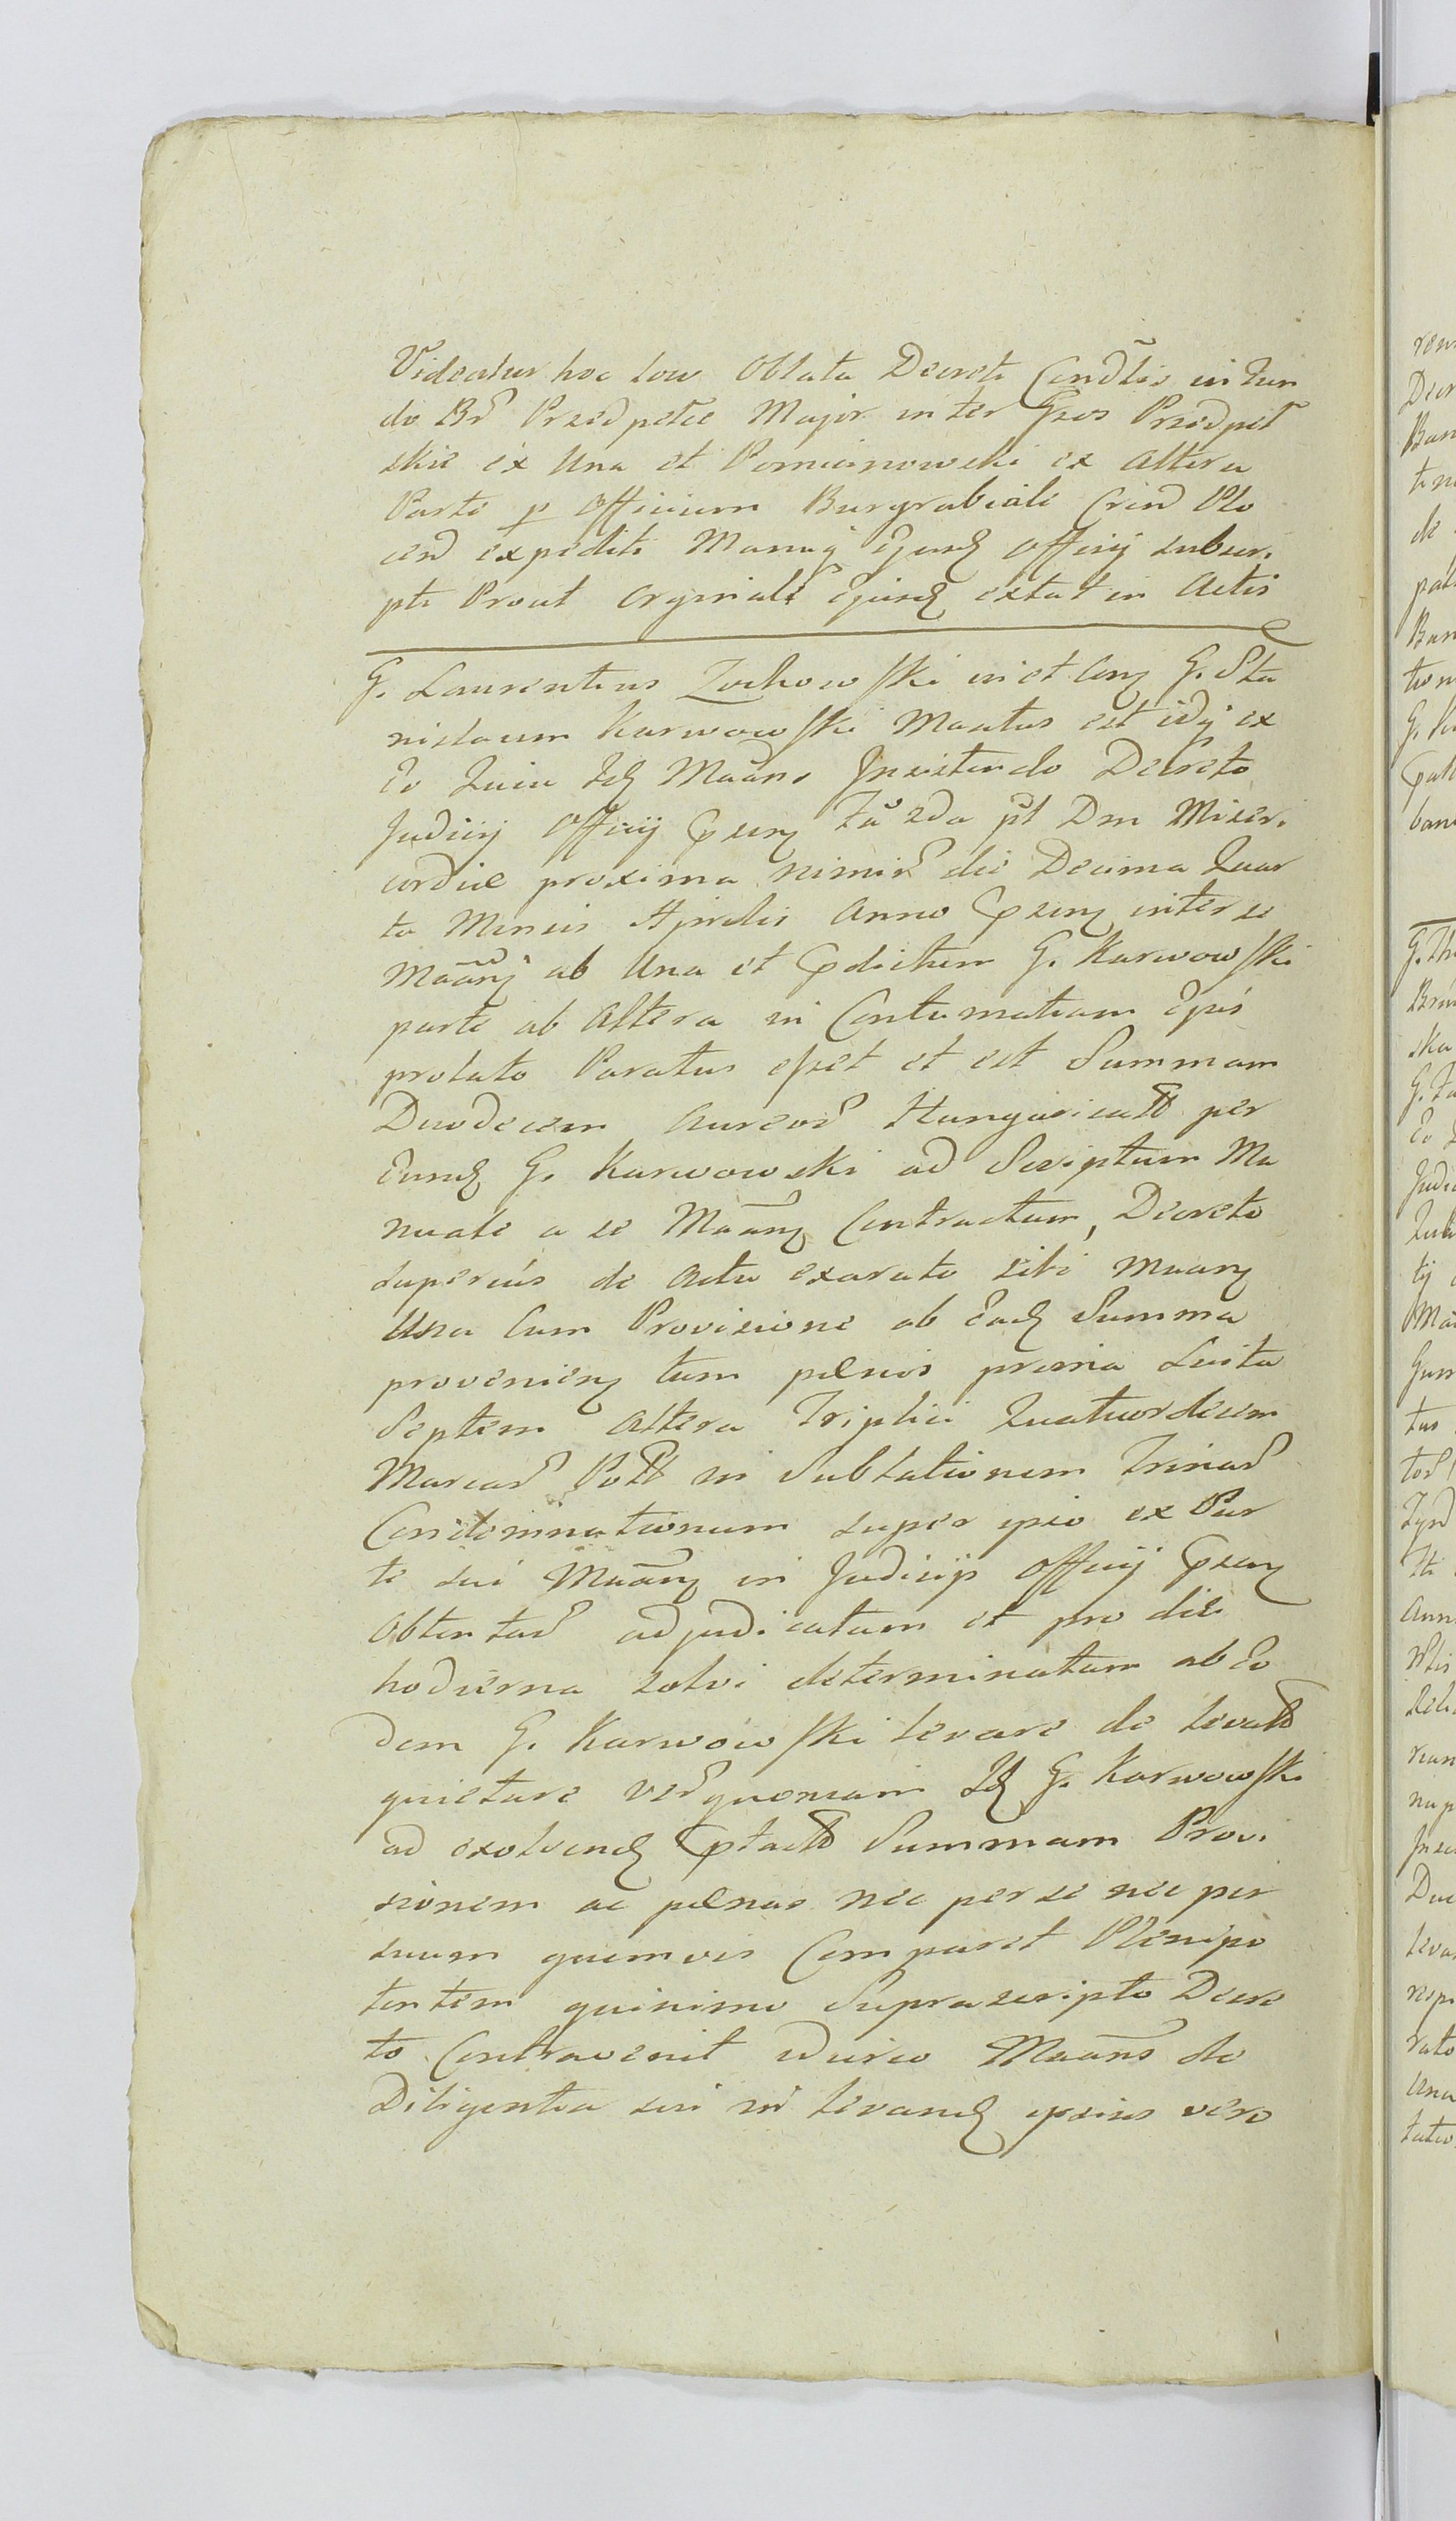 Videatur hoc loco Oblata Decreti Condlis in fun
do Br Przezdpelce Major inter Gsos Przezdpel
skie ex Una et Pomianowski ex Altera
Parte p Officium Burgrabiale Crend Plo
cen expediti Manuq Ejusd Officij subscr.
pti Prout Orginale Ejusd extat in Actis
G. Laurentius Zochowski in et Conq G. Sta
nislaum Karwowski Maatus est idq ex
Eo Quia Id Maans Insistendo Decreto
Judicij Officij Psenq
cordiæ proxima nimir die Decima Quar
ta Mensis Aprilis Anno Psenq inter se
Maanq ab Una et Pdictum G. Karwowski
parte ab Altera in Contumatiam Ejus
prolato Paratus esset et est Summam
Duodecem Aureor Hungaricall per
Eund G. Karwowski ad Scriptum Ma
nuale a se Maanq Contractum, Decreto
superius de Actu exarato sibi Maanq
Una Cum Provisione ab Ead Summa
provenienq tum pœnis prima Luita
Septem Altera Triplici Quatuordecem
Marcar Poll in Sublationem Trinar
Condemnationum super ipso ex Par
te sui Maanq in Judicijs Officij Psenq
Obtentar adjudicatam et pro die
hodierna solvi determinatam ab Eo
dem G. Karwowski levare de levatis
quietare quoniam Id G. Karwowski
ad exolvend Summam Provi
sionem ac pœnas nec per se nec per
suum quemvis Comparet Plenipo
tentem quinimo Suprascripto Decre
to Contravenit Maans de
Diligentia sui in levand ipsius vero